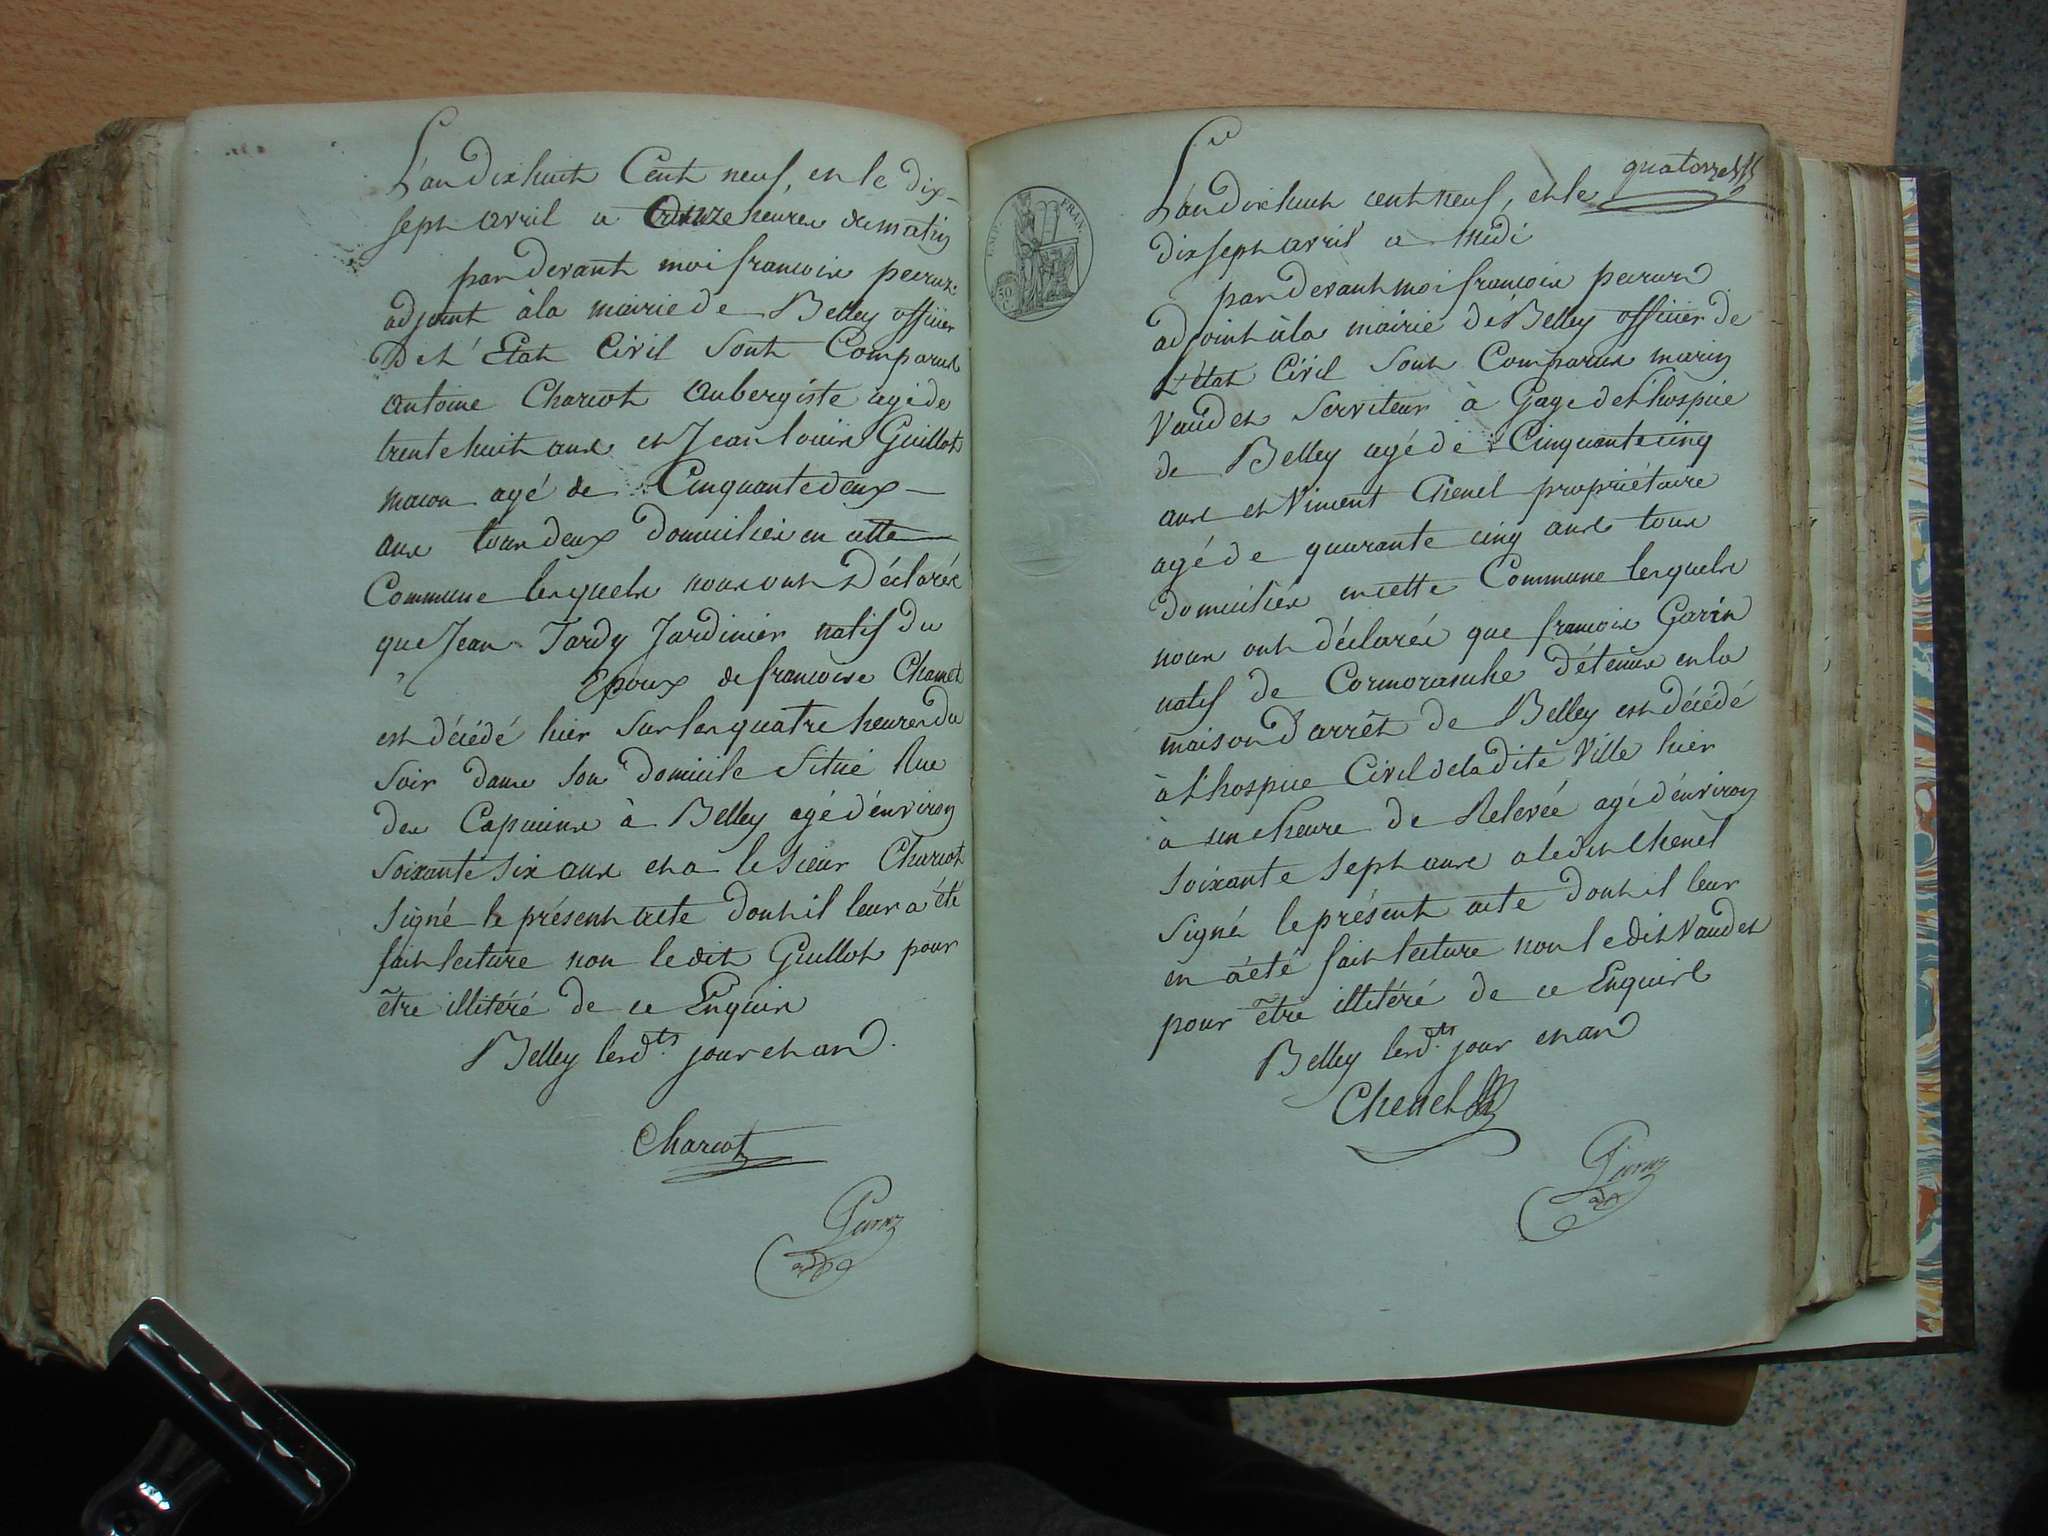 L'an dix huit Cent neuf, et le dix-
sept avril a onze heures du matin
par devant moi francois peiraz
adjoint à la mairie de Belley officier
de L'Etat Civil sont Comparus
antoine Charcot aubergiste agé de
trente huit ans et Jean louis Guillot
macon agé de Cinquante deux
ans tous deux domicilies en cette
Commune lesquels nous ont déclarés
que Jean Tardy Jardinier natif du
Epoux de francoise Chamet
est décédé hier sur les quatre heures du
soir dans son domicile situé Rue
des Capucins à Belley agé d'environ
soixante six ans et a le sieur Charcot
signé le présent acte dont il leur a été
fait lecture non ledit Guillot pour
être illitéré de ce Enquis
Belley lesd.ts jour et an.
Charcot
Peiraz
adj
quatorze
EMP. FRAN.
50 C
L'an dix huit cent neuf, et le
dix sept avril a midi
par devant moi francois peiraz
adjoint à la mairie de Belley officier de
L'état Civil sont Comparus marin
Vaudet serviteur à Gage de L'hospice
de Belley agé de Cinquante cinq
ans et Vincent Chenel propriétaire
agé de quarante cinq ans tous
domicilies en cette Commune lesquels
nous ont déclarés que francois Garin
natif de Cormoranche détenus en la
maison d'arrêt de Belley est décédé
à L'hospice Civil de la dite Ville hier
à une heure de Relevée agé d'environ
soixante sept ans a ledit Chenel
signé le présent acte dont il leur
en a été fait lecture non ledit Vaudet
pour être illitéré de ce Enquis
Belley lesd.ts jour et an
Chenel
Peiraz
adj